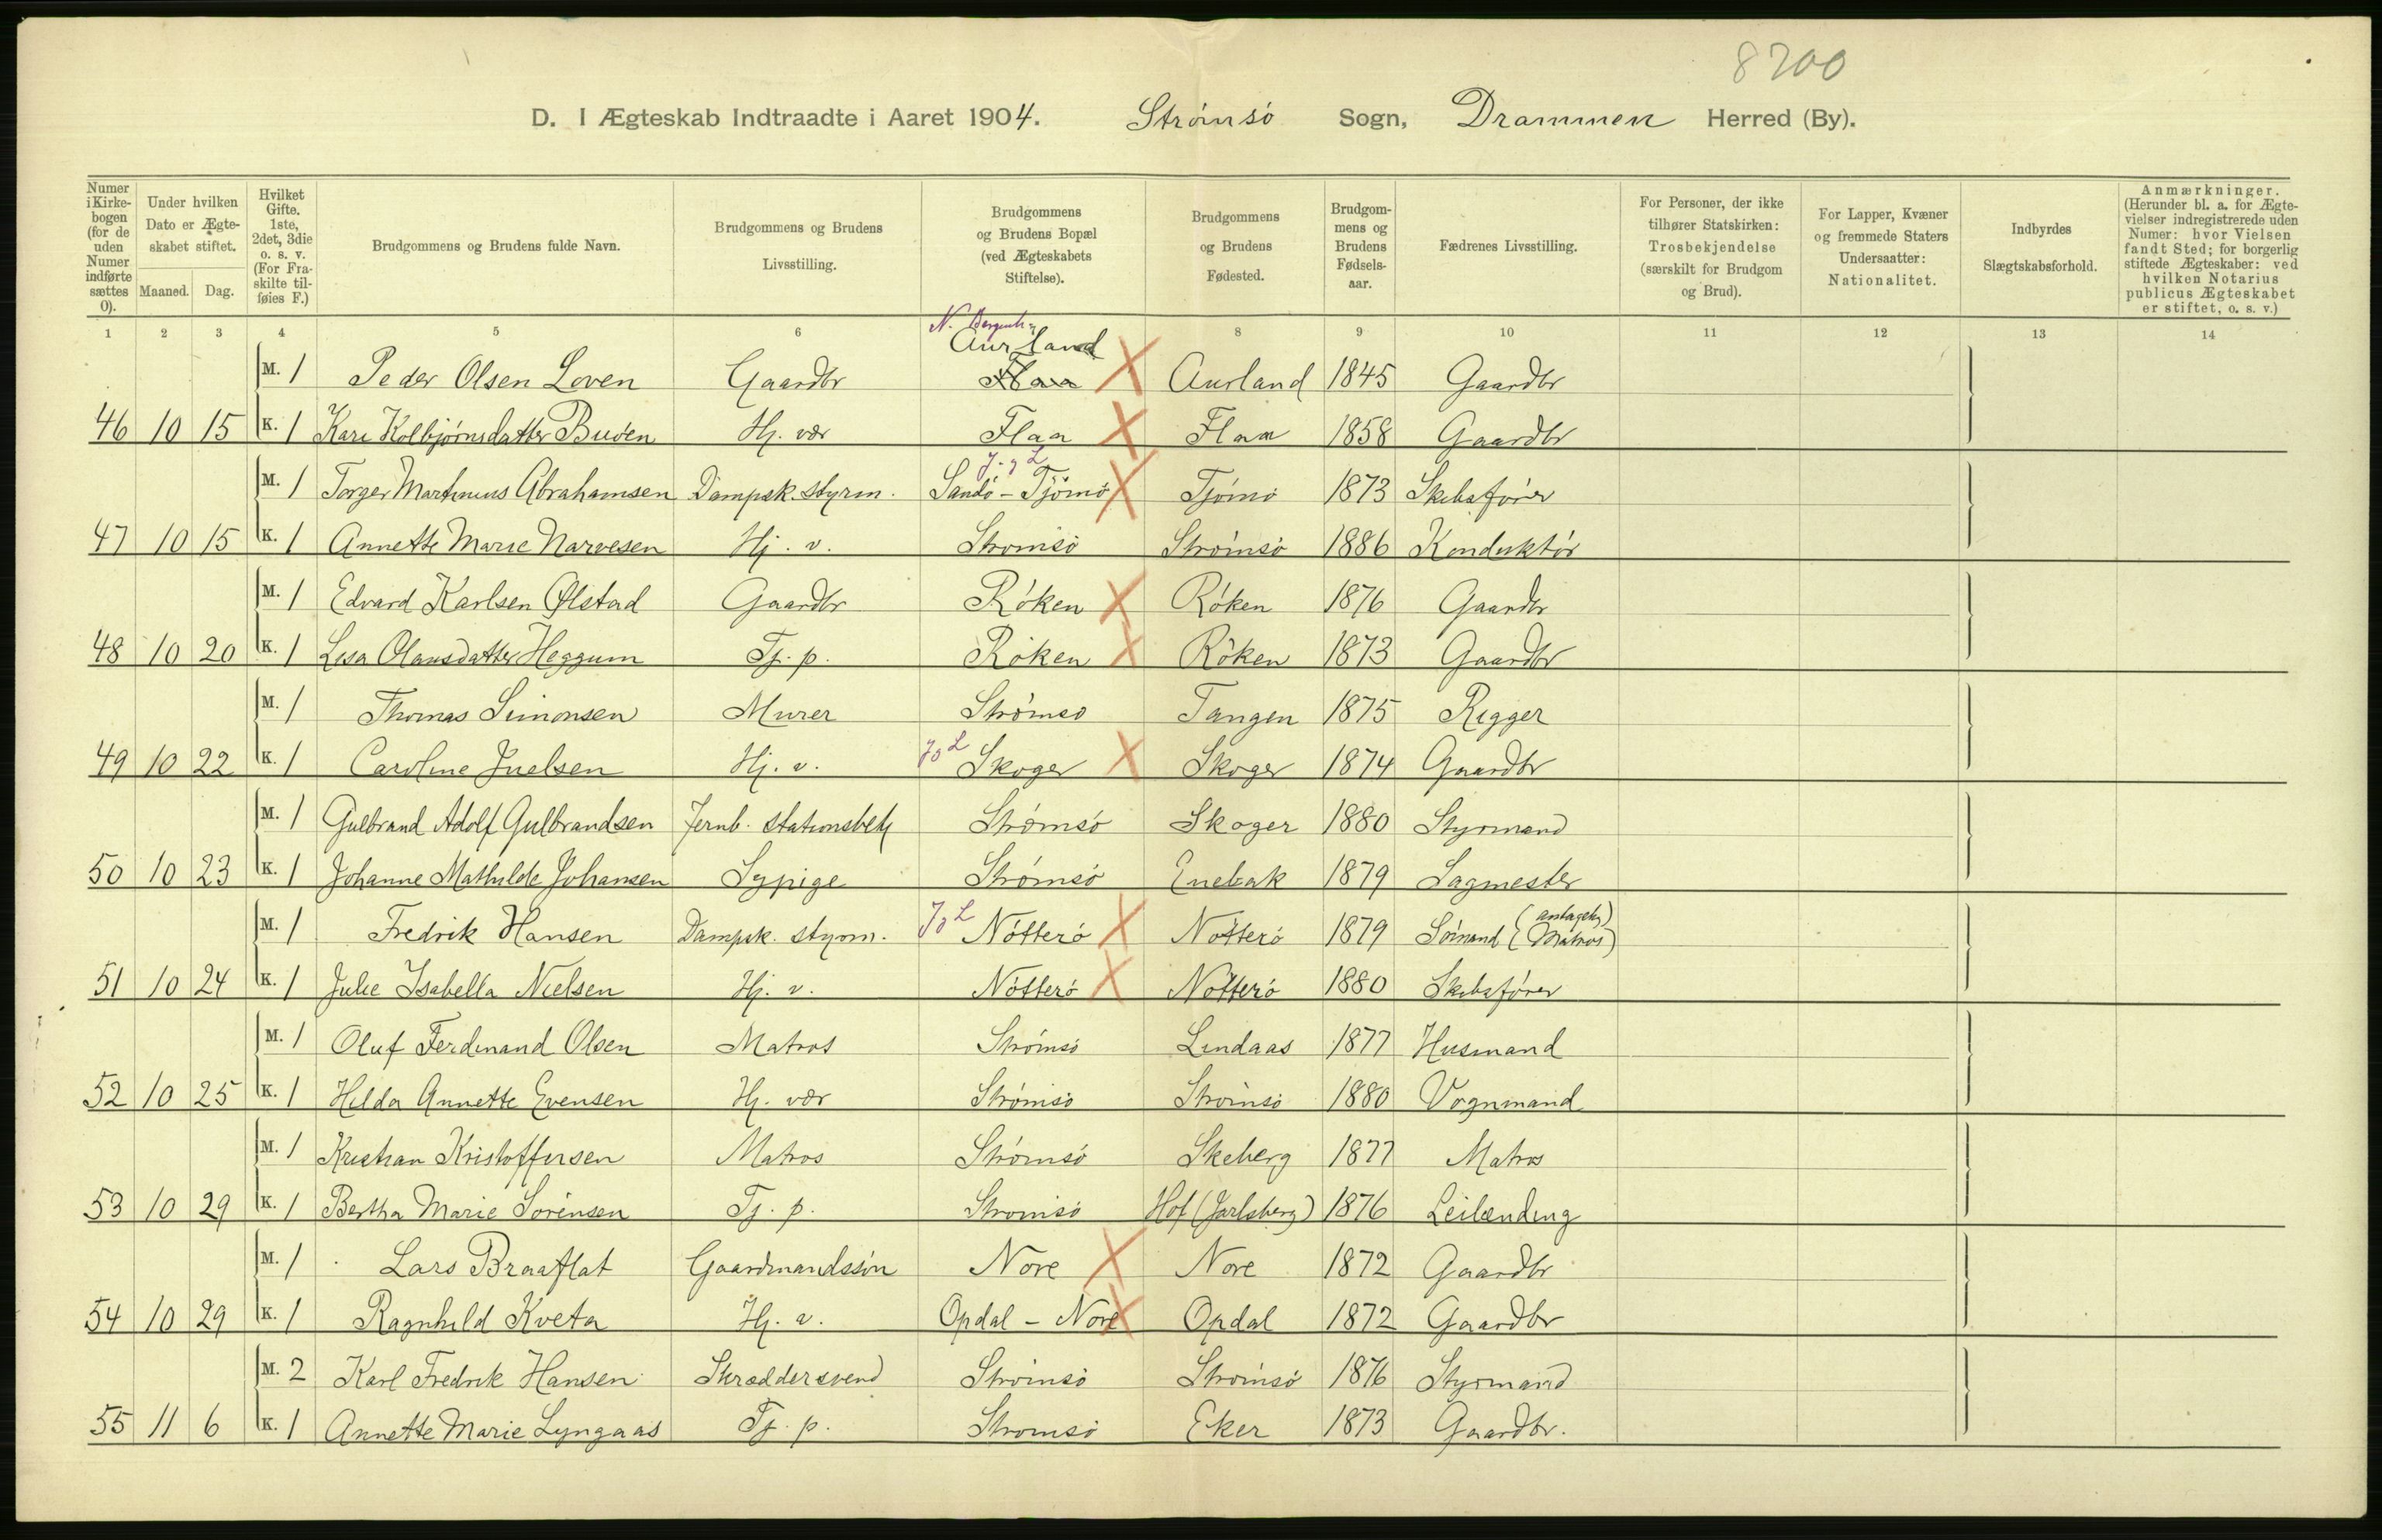 8200
D. I Ægteskab Indtraadte i Aaret 1904. Strømsö Sogn, Drammen Herred (By).
Numer i Kirkebogen (for de uden Numer indførte sættes 0).
Under hvilken Dato er Ægteskabet stiftet.
Maaned.
Dag.
Hvilket Gifte. 1ste, 2det, 3die o. s. v. (For Fraskilte tilføies F.)
Brudgommens og Brudens fulde Navn.
Brudgommens og Brudens Livsstilling.
Brudgommens og Brudens Bopæl (ved Ægteskabets Stiftelse).
Brudgommens og Brudens Fødested.
Brudgommens og Brudens Fødselsaar.
Fædrenes Livsstilling.
For Personer, der ikke tilhører Statskirken: Trosbekjendelse (særskilt for Brudgom og Brud).
For Lapper, Kvæner og fremmede Staters Undersaatter: Nationalitet.
Indbyrdes Slægtskabsforhold.
Anmærkninger. (Herunder bl. a. for Ægtevielser indregistrerede uden Numer: hvor Vielsen fandt Sted; for borgerlig stiftede Ægteskaber: ved hvilken Notarius publicus Ægteskabet er stiftet, o. s. v.)
1 2 3 4 5 6 8 9 10 11 12 13 14
N. Bergenh.
Aurland
M. 1 Peder Olsen Loven Gaardbr Flaa Aurland 1845 Gaardbr
46 10 15 K. 1 Kari Kolbjørnsdatter Buöen Hj. vær Flaa Flaa 1858 Gaardbr
J. g L
M. 1 Torger Martinius Abrahamsen Dampsk. styrm. Sandö - Tjömö Tjömö 1873 Skibsfører
47 10 15 K. 1 Annette Marie Narvesen Hj. v. Strömsö Strömsö 1886 Konduktör
M. 1 Edvard Karlsen Ølstad Gaardbr Röken Röken 1876 Gaardbr
48 10 20 K. 1 Lisa Olausdatter Heggum Tj. p. Röken Röken 1873 Gaardbr
M. 1 Thomas Simonsen Murer Strömsö Tangen 1875 Rigger
49 10 22 K. 1 Caroline Juelsen Hj. v. J g L Skoger Skoger 1874 Gaardbr
M. 1 Gulbrand Adolf Gulbrandsen Jernb. stationsbetj Strömsö Skoger 1880 Styrmand
50 10 23 K. 1 Johanne Mathilde Johansen Sypige Strömsö Enebak 1879 Sagmester
M. 1 Fredrik Hansen Dampsk. styrm. J g L Nötterö Nötterö 1879 Sömand (antagelig Matros)
51 10 24 K. 1 Julie Isabella Nielsen Hj. v. Nötterö Nötterö 1880 Skibsfører
M. 1 Oluf Ferdinand Olsen Matros Strömsö Lindaas 1877 Husmand
52 10 25 K. 1 Hilda Annette Evensen Hj. vær Strömsö Strömsö 1880 Vognmand
M. 1 Kristian Kristoffersen Matros Strömsö Skeberg 1877 Matros
53 10 29 K. 1 Bertha Marie Sörensen Tj. p. Strömsö Hof (Jarlsberg) 1876 Leilænding
M. 1 Lars Braaflat Gaardmandssön Nore Nore 1872 Gaardbr
54 10 29 K. 1 Ragnhild Kveta Hj. v. Opdal - Nore Opdal 1872 Gaardbr
M. 2 Karl Fredrik Hansen Skræddersvend Strömsö Strömsö 1876 Styrmand
55 11 6 K. 1 Annette Marie Lyngaas Tj. p. Strömsö Eker 1873 Gaardbr.